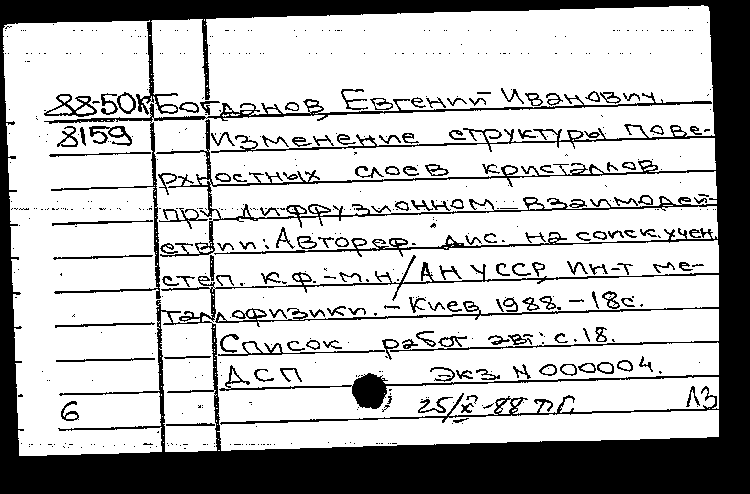 88-50К Богданов, Евгений Иванович.
8159 Изменение структуры пове-
рхностных слоев кристаллов
при диффузионном взаимодей-
ствии: Автореф. дис. на соиск. учен.
степ. к.ф.-м.н. / АН УССР, Ин-т ме-
таллофизики. - Киев, 1988. - 18с.
Список работ авт.: с.18.
ДСП Экз. N 000004.
6 25/X-88 П.Г. ЛЗ